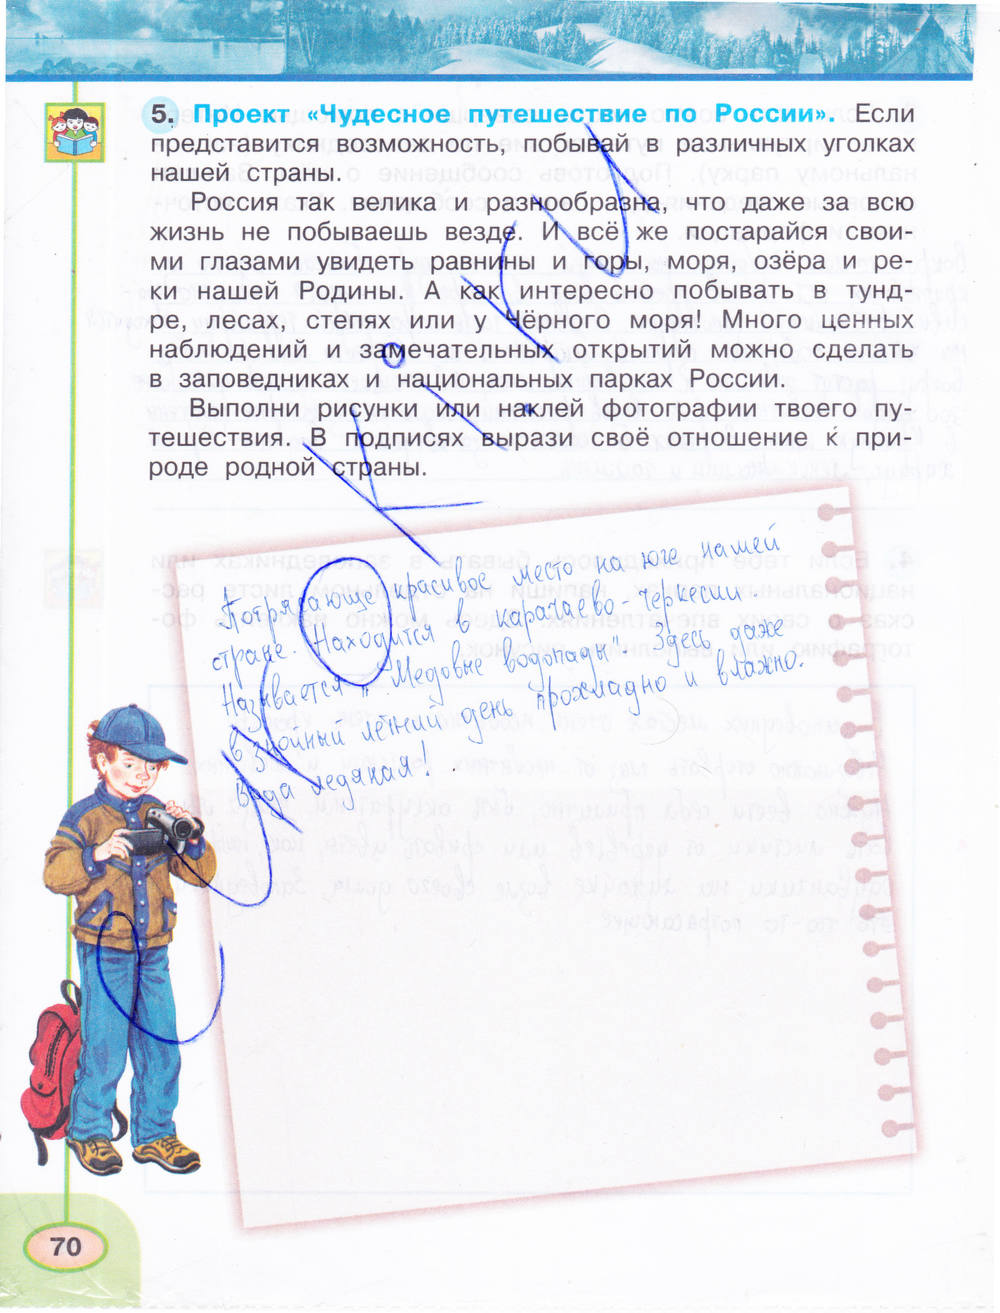 5. Проект «Чудесное путешествие по России». Если
представится возможность, побывай в различных уголках
нашей страны.
Россия так велика и разнообразна, что даже за всю
жизнь не побываешь везде. И всё же постарайся свои-
ми глазами увидеть равнины и горы, моря, озёра и ре-
ки нашей Родины. А как интересно побывать в тунд-
ре, лесах, степях или у Чёрного моря! Много ценных
наблюдений и замечательных открытий можно сделать
в заповедниках и национальных парках России.
Выполни рисунки или наклей фотографии твоего пу-
тешествия. В подписях вырази своё отношение к при-
роде родной страны.
Потрясающе красивое место на юге нашей
стране. Находится в карачаево-Черкесии.
Называется „Медовые водопады". Здесь даже
в знойный летний день прохладно и влажно.
Вода ледяная!
70